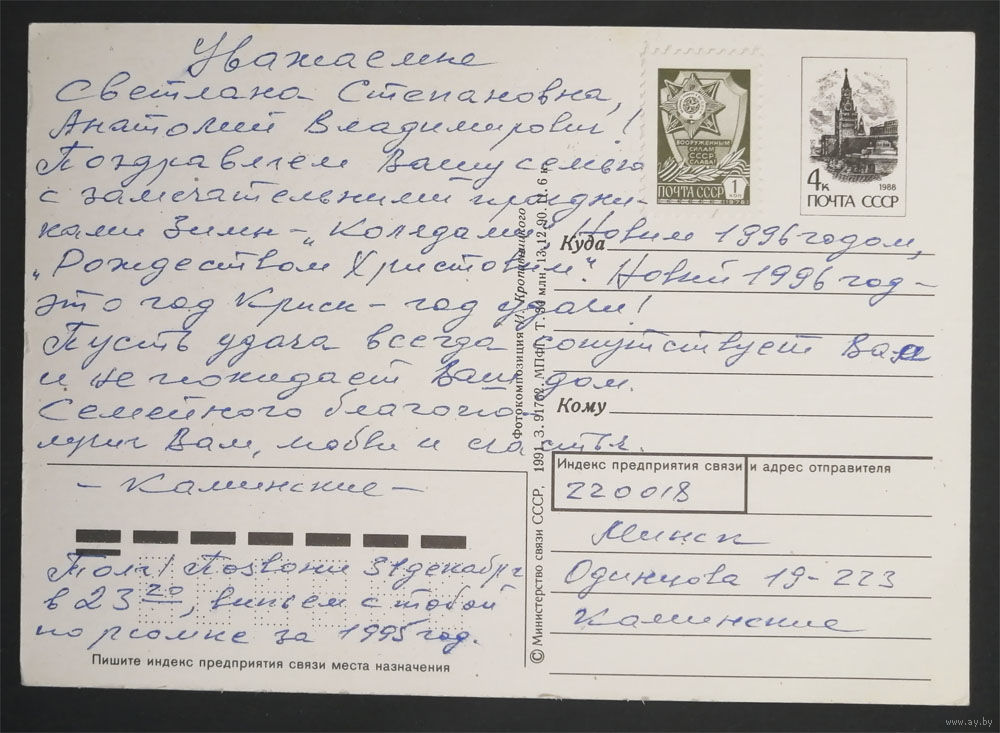 Уважаемые
Светлана Степановна,
Анатолий Владимирович!
Поздравляем Вашу семью
с замечательными праздни-
ками Зимы - „Колядами",
Новым 1996 годом,
„Рождеством Христовым". Новый 1996 год -
это год Крысы - год удачи!
Пусть удача всегда сопутствует Вам
и не покидает Ваш дом.
Семейного благопо-
лучия Вам, любви и счастья.
- Каминские -
Толя! Позвони 31 декабря
в 23 20, выпьем с тобой
по рюмке за 1995 год.
Пишите индекс предприятия связи места назначения
© Министерство связи СССР, 1991. З. 91762. МПФГ. Т. 34 млн. 13.12.90. Ц. 6 к.
Фотокомпозиция И. Кропивницкого
ВООРУЖЕННЫМ
СИЛАМ
СССР
СЛАВА!
ПОЧТА СССР 1 КОП
1976
4к
1988
ПОЧТА СССР
Куда
Кому
Индекс предприятия связи и адрес отправителя
220018
Минск
Одинцова 19-223
Каминские
www.ay.by